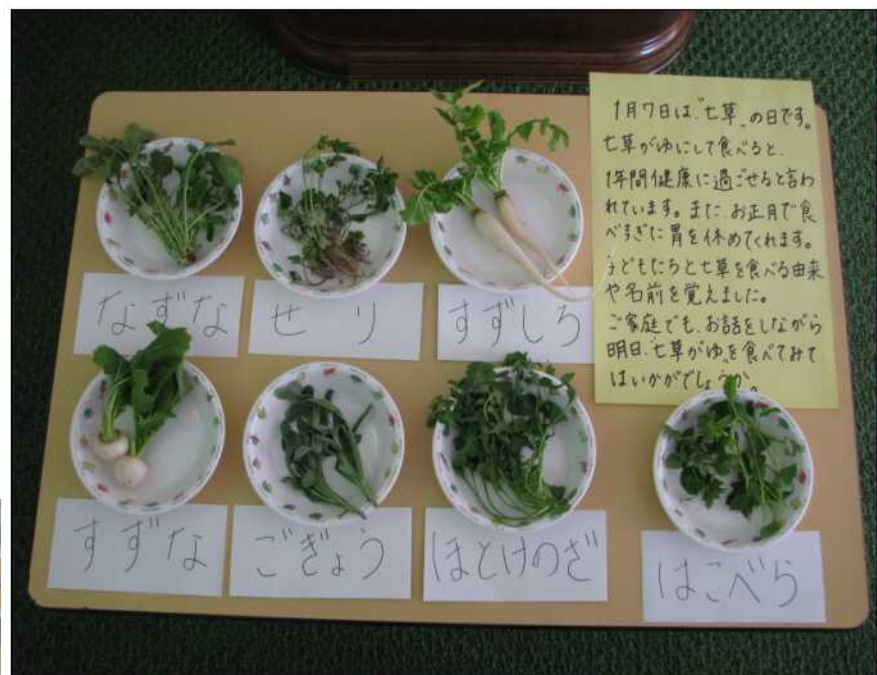 1月7日は、"七草"の日です。
七草がゆにして食べると、
1年間健康に過ごせると言わ
れています。また、お正月で食
べすぎた胃を休めてくれます。
子どもたちと七草を食べる由来
や名前を覚えました。
ご家庭でも、お話をしながら
明日、"七草がゆ"を食べてみて
はいかがでしょうか。
なずな
せり
すずしろ
すずな
ごぎょう
ほとけのざ
はこべら